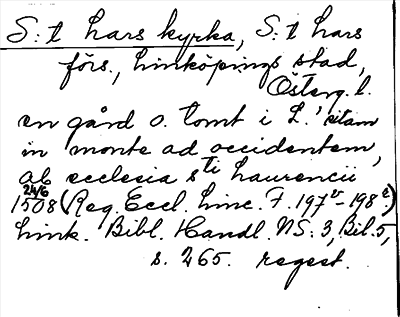 S:t Lars kyrka, S:t Lars
förs., Linköpings stad,
Österg. l.
en gård o. tomt i L. 'sitam
in monte ad occidentem,
ab ecclesia sti Laurencii
24/6
1508 (Reg. Eccl. Linc. F. 197v-198r.)
Link. Bibl. Handl. NS: 3, Bil. 5,
s. 265. regest.